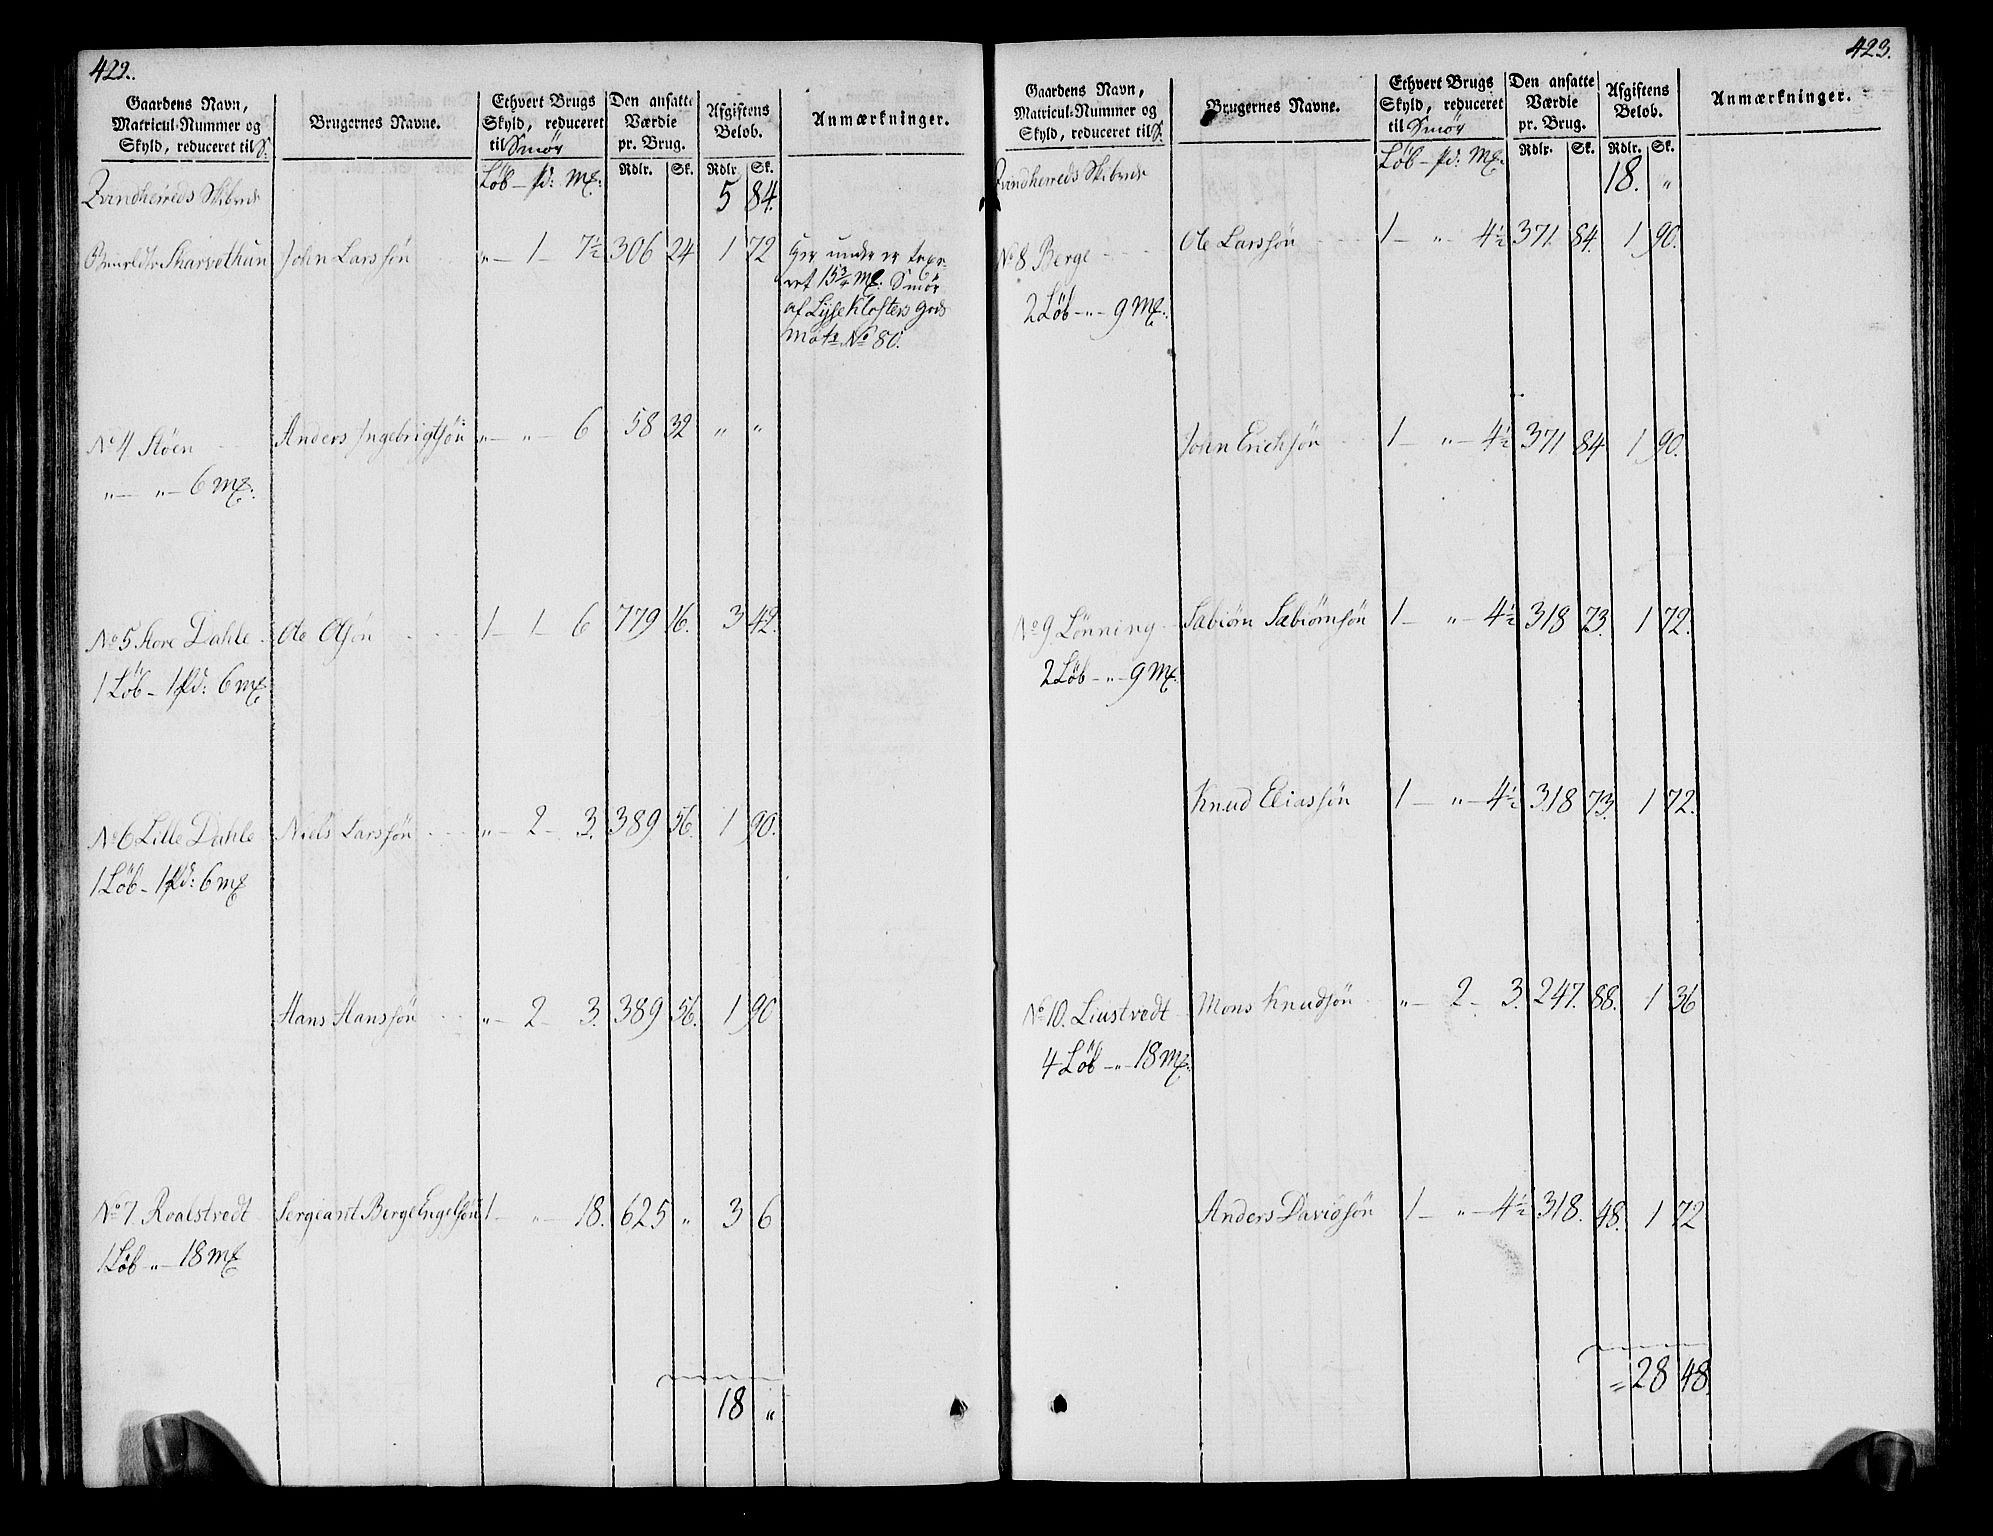 422.
Gaardens Navn, Matricul-Nummer og Skyld, reduceret til S. | Brugernes Navne. | Ethvert Brugs Skyld, reduceret til Smör | Den ansatte Værdie pr. Brug. | Afgiftens Beløb. | Anmærkninger.
Löb – Pd: Mk: | Rdlr. | Sk. | Rdlr. | Sk.
Qvindherreds Skibrede 5 84.
Skarvethun John Larssön „ – 1 – 7½ 306 24 1 72
Her under er
ret 15¾ Mk: Smör
af Lyse Klosters Gods
Mats No 80.
No 4 Støen Anders Ingebrigtsön „ – „ – 6 58 32 „ „
„ – „ – 6 Mk:
No 5 Store Dahle Ole Olsön 1 – 1 – 6 779 16. 3 42.
1 Löb – 1 Pd: 6 Mk
No 6 Lille Dahle Niels Larssön „ – 2 – 3. 389 56. 1 90.
1 Löb – 1 Pd: 6 Mk
Hans Hanssön „ – 2 – 3. 389 56. 1 90
No 7 Roalstvedt Sergeant Berge Engelsön 1 – „ – 18. 625 „ 3 6
1 Löb „ – 18 Mk
18 „
423.
Gaardens Navn, Matricul-Nummer og Skyld, reduceret til S. | Brugernes Navne. | Ethvert Brugs Skyld, reduceret til Smör | Den ansatte Værdie pr. Brug. | Afgiftens Beløb. | Anmærkninger.
Löb – Pd: Mk: | Rdlr. | Sk. | Rdlr. | Sk.
Qvindherreds Skibrede 18. „
No 8 Berge Ole Larssön 1 – „ – 4½ 371. 84. 1 90.
2 Löb – „ – 9 Mk:
John Erichsön 1 – „ – 4½ 371 84 1 90.
No 9. Lönning Sæbiörn Sæbiörnsön 1 – „ – 4½ 318 73. 1 72.
2 Löb – „ – 9 Mk:
Knud Eliassön 1 – „ – 4½ 318 73. 1 72.
No 10. Liustvedt Mons Knudsön „ – 2 – 3. 247. 88. 1 36
4 Löb – „ – 18 Mk:
Anders Davidsön 1 – „ – 4½ 318. 48. 1 72
28 48.